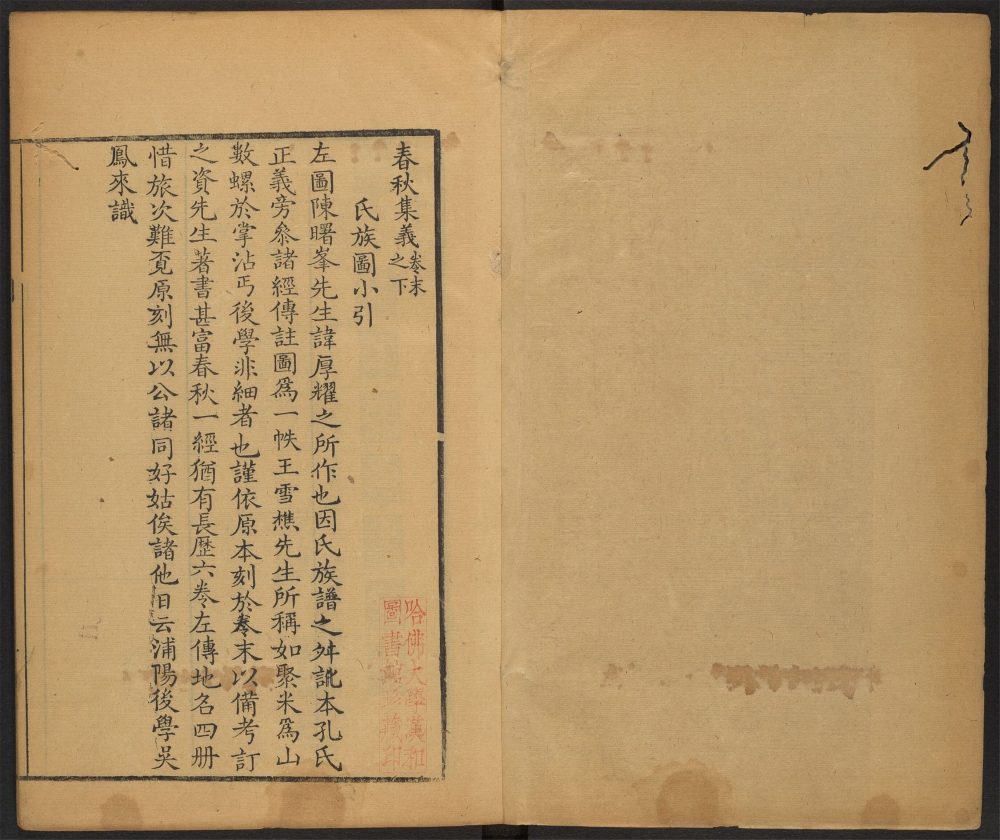 春秋集義卷末之下
氏族圖小引
左圖陳曙峯先生諱厚耀之所作也因氏族譜之舛訛本孔氏
正義旁叅諸經傳註圖爲一帙王雪樵先生所稱如聚米爲山
數螺於掌沾丐後學非細者也謹依原本刻於卷末以備考訂
之資先生著書甚富春秋一經猶有長歷六卷左傳地名四册
惜旅次難覔原刻無以公諸同好姑俟諸他日云浦陽後學吳
鳳來識
哈佛大學漢和
圖書館珍藏印